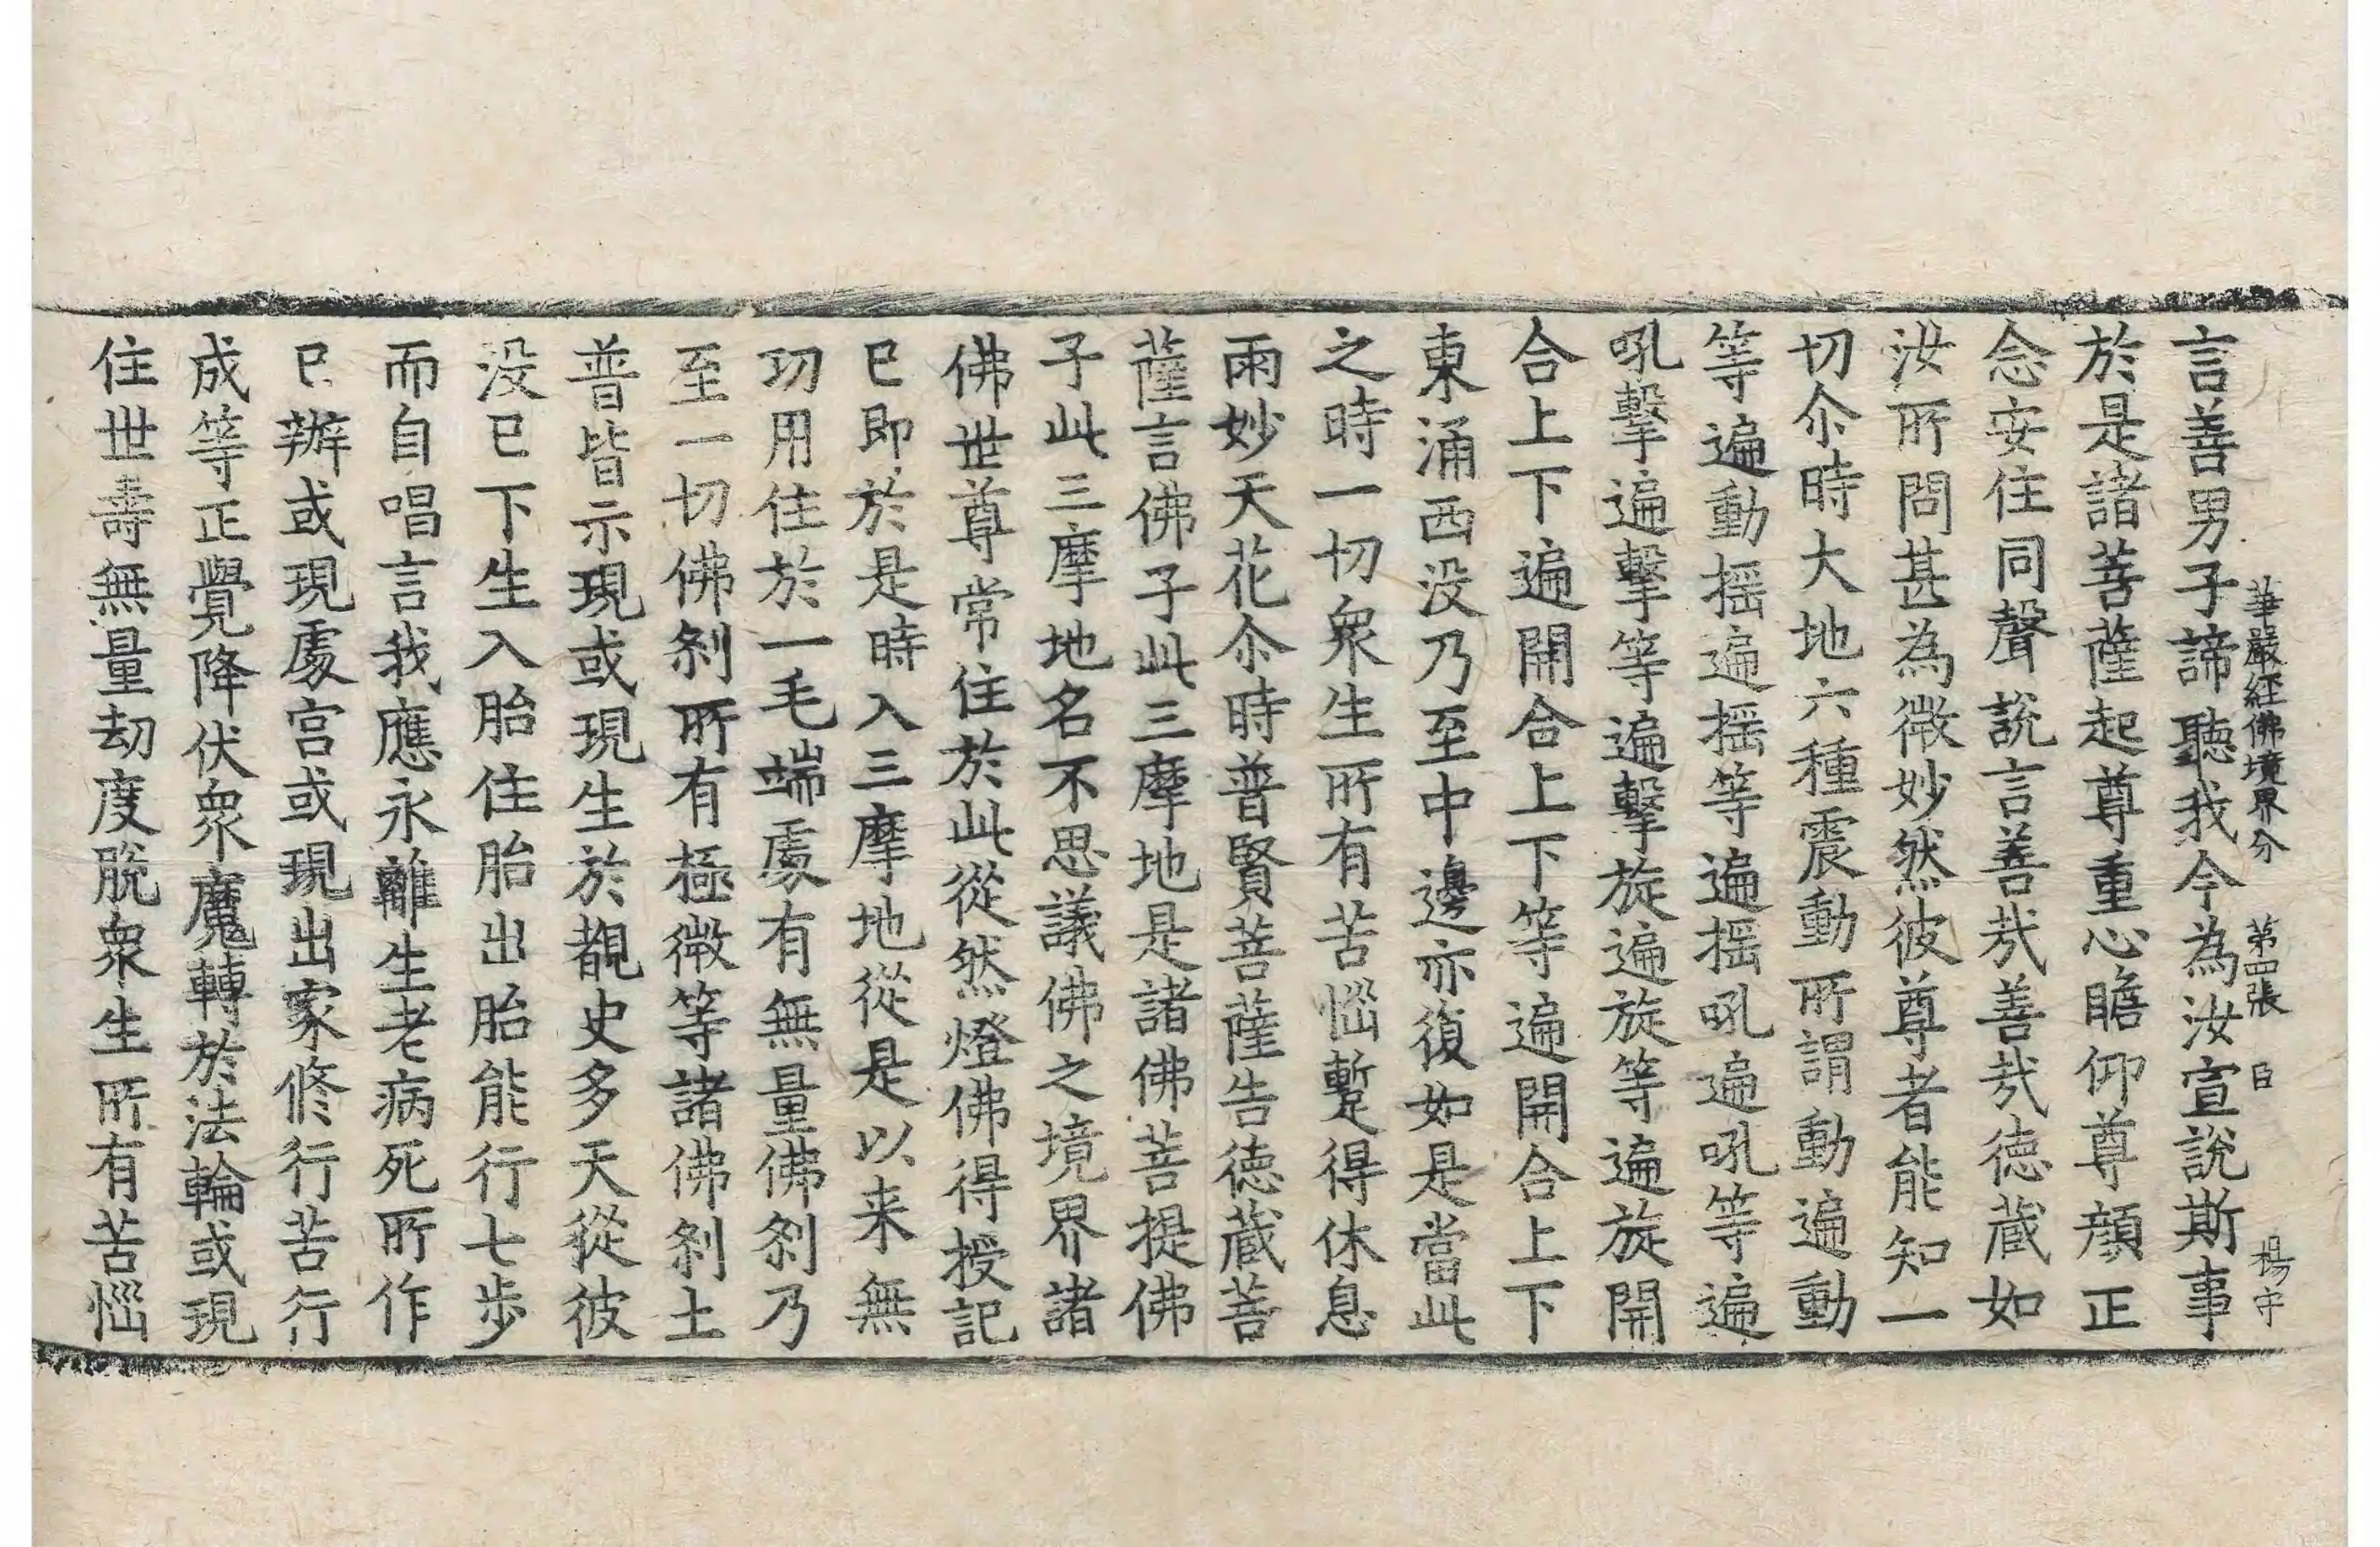 華嚴經佛境界分 第四張 臣 楊守
言善男子諦聽我今為汝宣說斯事
於是諸菩薩起尊重心瞻仰尊顔正
念安住同聲說言善㢤善㢤德蔵如
汝所問甚為微妙然彼尊者能知一
切尒時大地六種震動所謂動遍動
等遍動揺遍揺等遍揺吼遍吼等遍
吼擊遍擊等遍擊旋遍旋等遍旋開
合上下遍開合上下等遍開合上下
東涌西没乃至中邊亦復如是當此
之時一切衆生所有苦惱蹔得休息
雨妙天花尒時普賢菩薩告德蔵菩
薩言佛子此三摩地是諸佛菩提佛
子此三摩地名不思議佛之境界諸
佛世尊常住於此從然燈佛得授記
已即於是時入三摩地從是以来無
功用住於一毛端處有無量佛刹乃
至一切佛刹所有極微等諸佛刹土
普皆示現或現生於覩史多天從彼
没已下生入胎住胎出胎能行七步
而自唱言我應永離生老病死所作
已辦或現處宫或現出家修行苦行
成等正覺降伏衆魔轉於法輪或現
住世壽無量劫度脫衆生所有苦惱